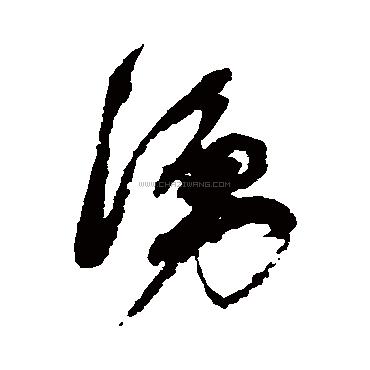 湧
WWW.CHAZIWANG.COM